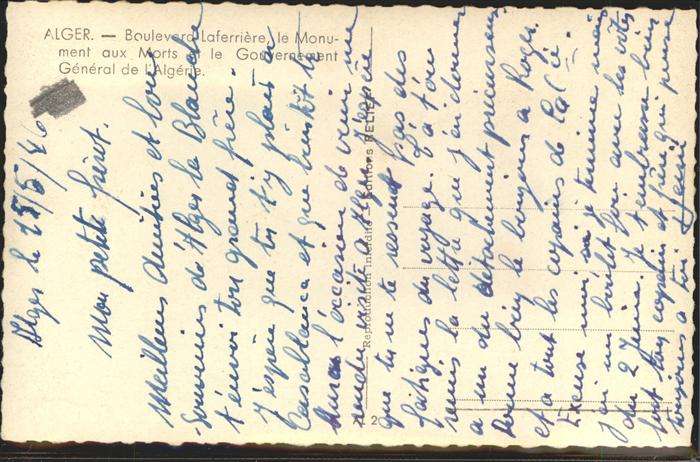 ALGER. — Boulevard Laferrière, le Monu-
ment aux Morts et le Gouvernement
Général de l'Algérie.
Reproduction interdite — Editions RELIEF
2
Alger le 15/5/46
Mon petit frérot.
Meilleurs Amitiés et bons
Souvenirs de Alger la Blanche
t'envoi ton grand frère.
J'espère que tu t'y plais à
Casablanca et que bientôt tu
auras l'occasion de venir me
rendre visite à Alger. J'espère
que tu ne te ressent pas des
fatigues du voyage. T'a t'on
remis la lettre que j'ai donné
a un du détachement précurseur.
Donne bien le bonjour à Roger
et a tout les copains de la Cie.
Excuse moi si je termine mais
j'ai un boulot fou avec les
du 2 Juin. Je t'embrasse bien
fort ton copain et frère qui pense
toujours à toi